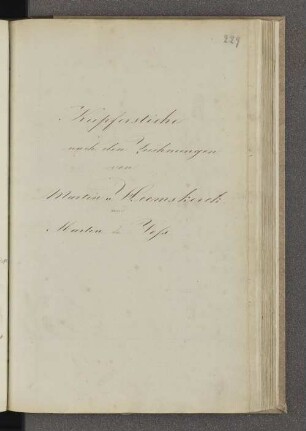 229
Kupferstiche
nach den Zeichnungen
von
Martin v Heemskerck
Martin de Voss